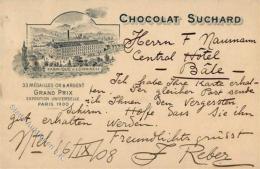 CHOCOLAT SUCHARD
Herrn F. Naumann
Central Hôtel
Bâle
FABRIQUE À LÖRRACH
33 MÉDAILLES OR & ARGENT
GRAND PRIX
EXPOSITION UNIVERSELLE
PARIS 1900
Ich habe Ihre Karte
der gleicher Post sende
ich Ihnen den Vergessten
Schirm Hoffe dass Sie ihn
gut erhalten werden.
Freundlichst grüsst
16/IX 08 J. Reber